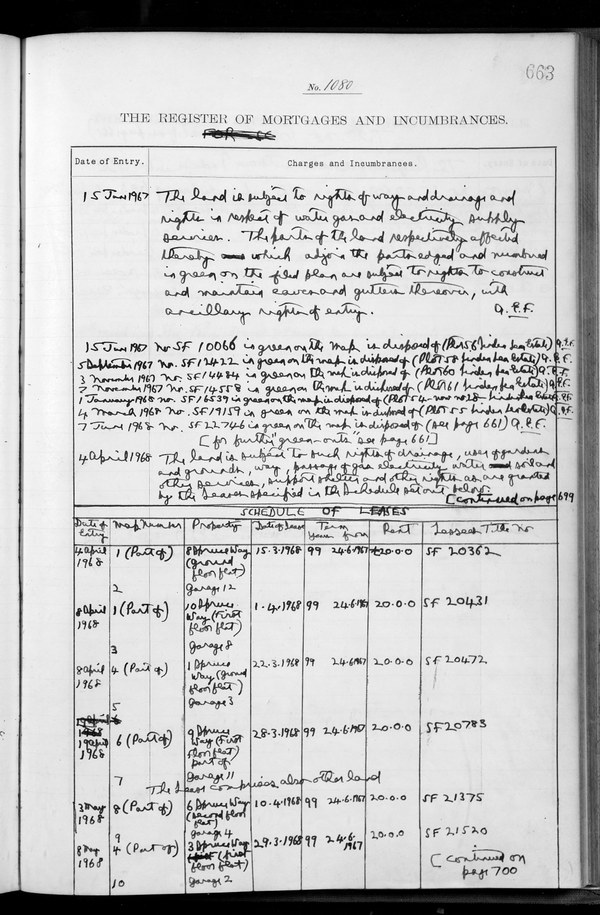 663
No. 1080
THE REGISTER OF MORTGAGES AND INCUMBRANCES.
Date of Entry. Charges and Incumbrances.
15 June 1967 The land is subject to rights of way and drainage and
rights in respect of water gas and electricity supply
services. The parts of the land respectively affected
thereby which adjoin the parts edged and numbered
in green on the filed plan are subject to rights to construct
and maintain eaves and gutters thereover, with
ancillary rights of entry. A.P.F.
15 June 1967 No. SF 10066 in green on the map is disposed of (Plot 56 Linden Lea Estate) A.P.F.
5 September 1967 No. SF 12422 in green on the map is disposed of (Plot 58 Linden Lea Estate) A.P.F.
3 November 1967 No. SF 14484 in green on the map is disposed of (Plot 60 Linden Lea Estate) A.P.F.
7 November 1967 No. SF 14558 in green on the map is disposed of (Plot 61 Linden Lea Estate) A.P.F.
1 January 1968 No. SF 16539 in green on the map is disposed of (Plot 54 - now no 28 - Linden Lea Estate) A.P.F.
4 March 1968 No. SF 19159 in green on the map is disposed of (Plot 55 Linden Lea Estate) A.P.F.
7 June 1968 No. SF 22746 in green on the map is disposed of (see page 661) A.P.F.
[for further "green-outs" see page 661]
4 April 1968 The land is subject to such rights of drainage, user of gardens
and grounds, way, passage of gas electricity water soil and
other services, support shelter and other rights as are granted
by the Leases specified in the Schedule set out below.
[continued on page 699
SCHEDULE OF LEASES
Date of Entry Map Number Property Date of Lease Term Years from Rent Lessee's Title No
4 April 1968 1 (Part of) 8 Spruce Way (ground floor flat) 15.3.1968 99 24.6.1967 20.0.0 SF 20362
2 Garage 12
8 April 1968 1 (Part of) 10 Spruce Way (First floor flat) 1.4.1968 99 24.6.1967 20.0.0 SF 20431
3 Garage 8
8 April 1968 4 (Part of) 1 Spruce Way (ground floor flat) 22.3.1968 99 24.6.1967 20.0.0 SF 20472
5 Garage 3
19 April 1968 6 (Part of) 9 Spruce Way (First floor flat) part of 28.3.1968 99 24.6.1967 20.0.0 SF 20783
7 Garage 11
The Lease comprises also other land
3 May 1968 8 (Part of) 6 Spruce Way (second floor flat) 10.4.1968 99 24.6.1967 20.0.0 SF 21375
9 Garage 4
8 May 1968 4 (Part of) 3 Spruce Way (first floor flat) 29.3.1968 99 24.6.1967 20.0.0 SF 21520
10 Garage 2
[continued on
page 700